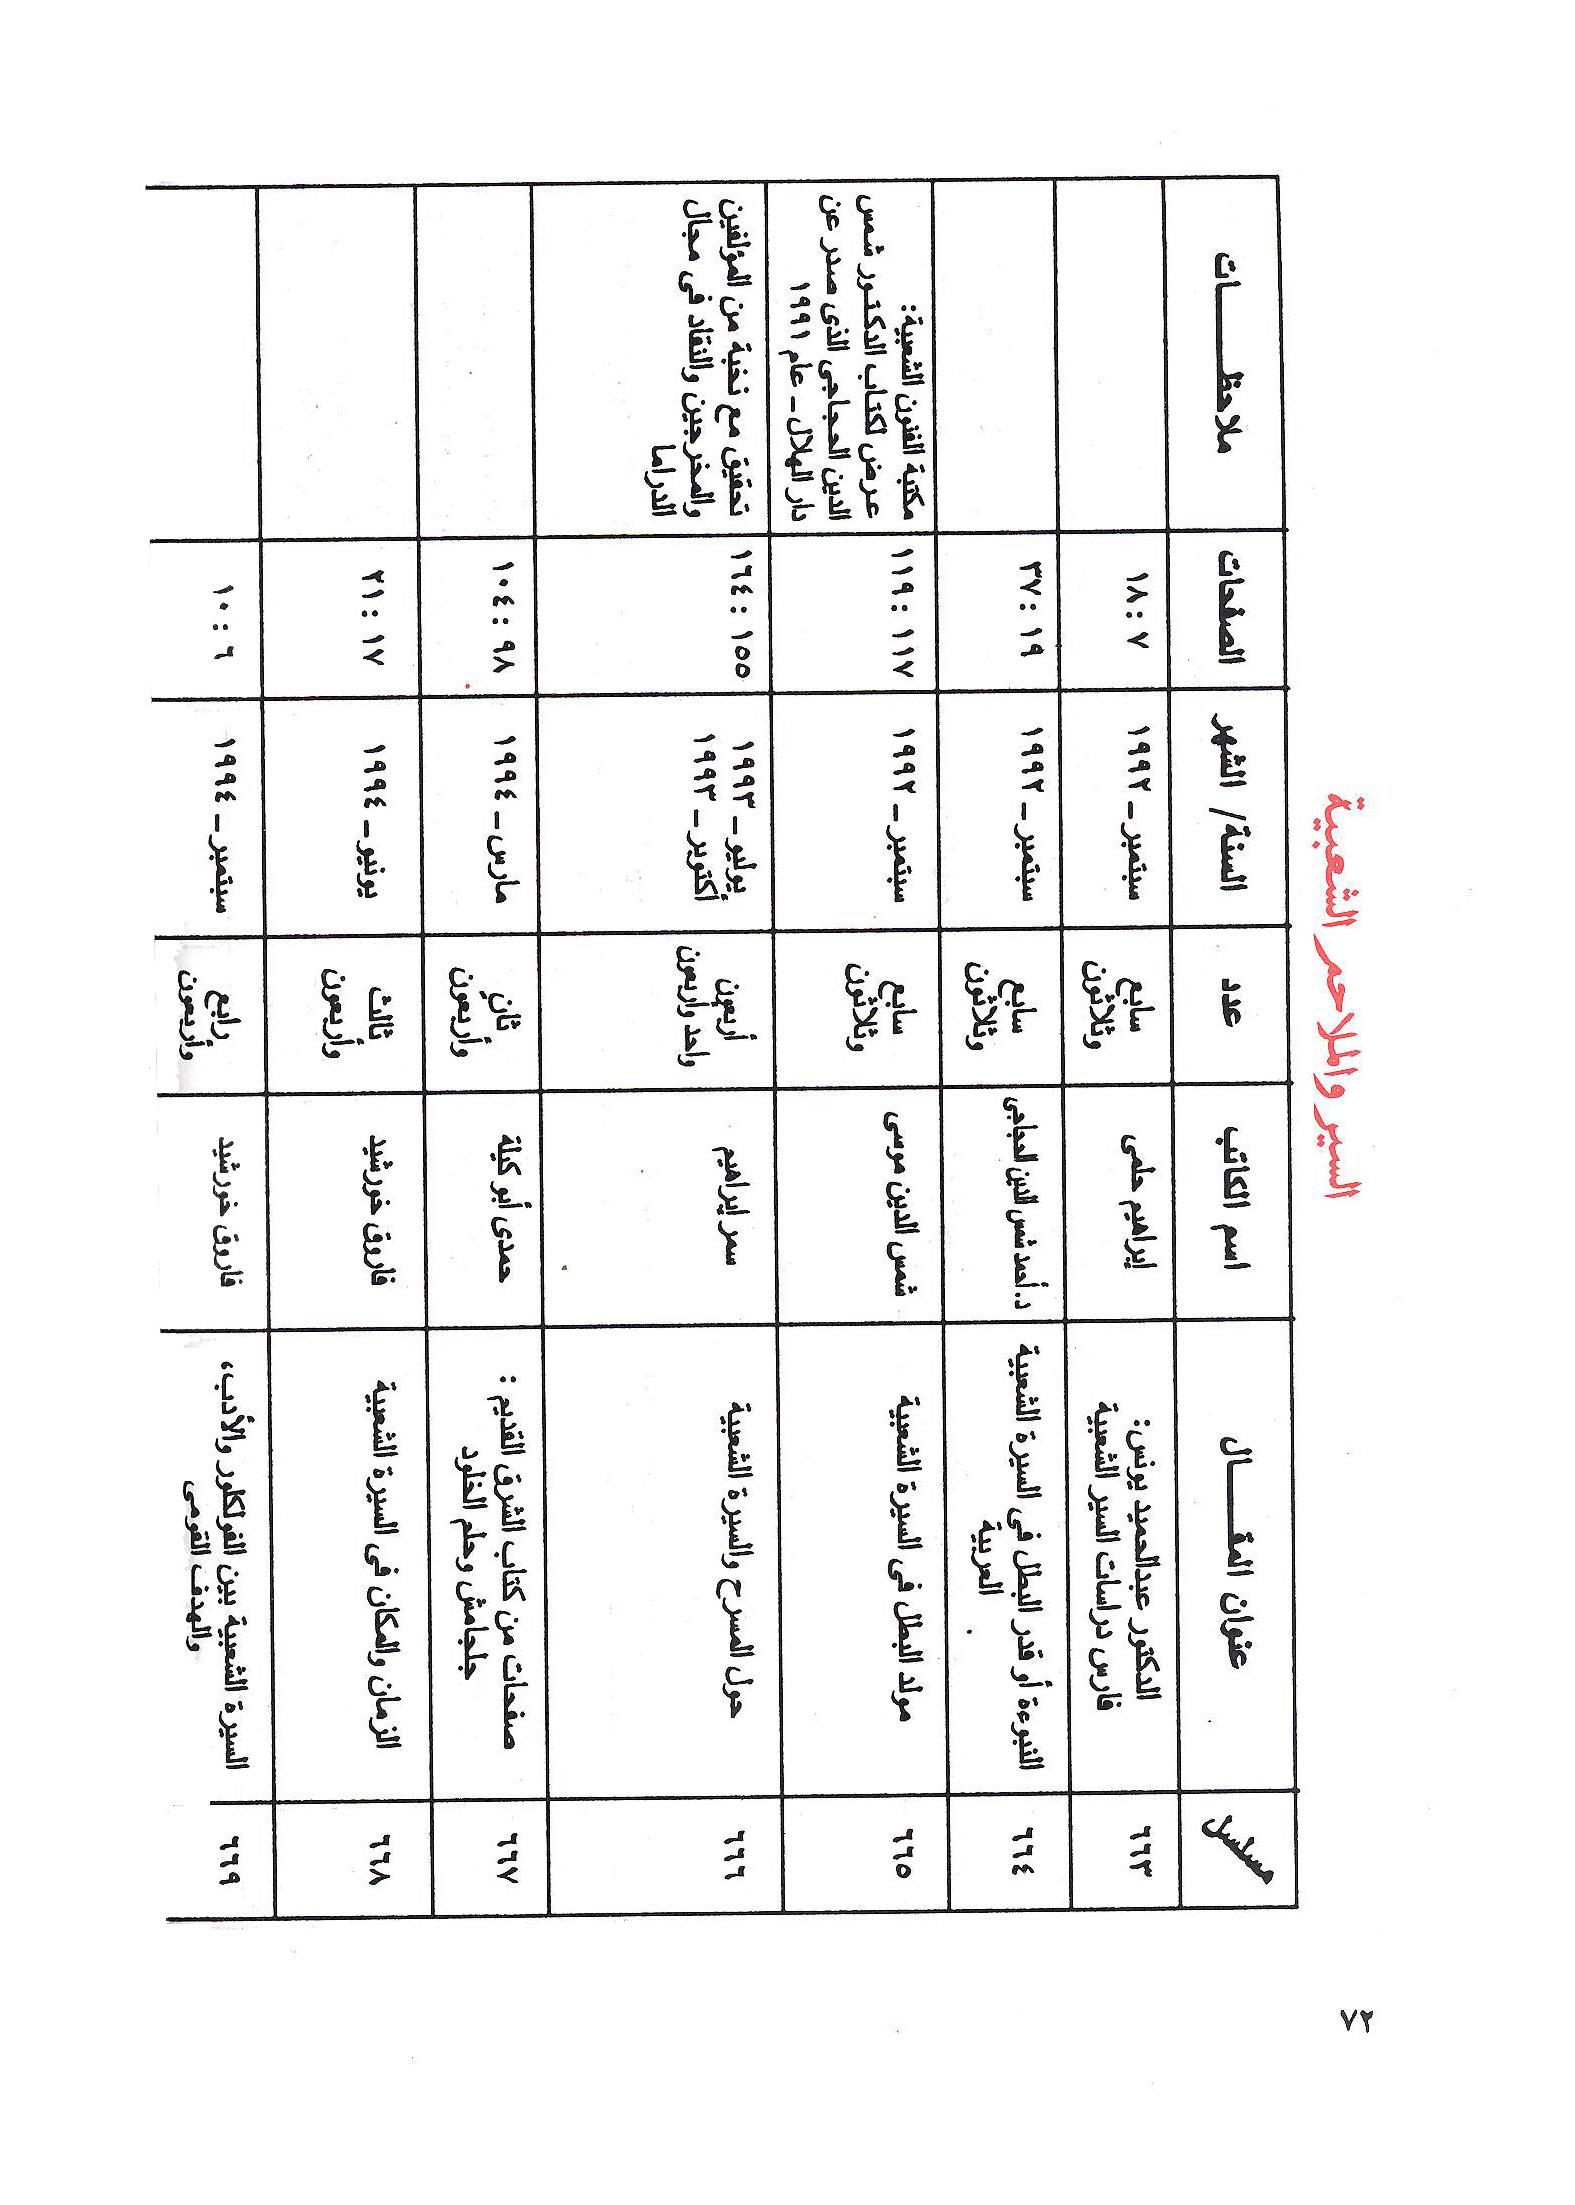 السير والملاحم الشعبية
مسلسل
عنوان المقـــال
اسم الكاتب
عدد
السنة/ الشهر
الصفحات
ملاحظـــات
٦٦٣
الدكتور عبدالحميد يونس:
فارس دراسات السير الشعبية
إبراهيم حلمى
سابع
وثلاثون
سبتمبر ـ ١٩٩٢
٧ : ١٨
٦٦٤
النبوءة أو قدر البطل فى السيرة الشعبية
العربية
د. أحمد شمس الدين الحجاجى
سابع
وثلاثون
سبتمبر ـ ١٩٩٢
١٩ : ٣٧
٦٦٥
مولد البطل فى السيرة الشعبية
شمس الدين موسى
سابع
وثلاثون
سبتمبر ـ ١٩٩٢
١١٧ : ١١٩
مكتبة الفنون الشعبية:
عرض لكتاب الدكتور شمس
الدين الحجاجى الذى صدر عن
دار الهلال ـ عام ١٩٩١
٦٦٦
حول المسرح والسيرة الشعبية
سمر إبراهيم
أربعون
واحد وأربعون
يوليو ـ ١٩٩٣
أكتوبر ـ ١٩٩٣
١٥٥ : ١٦٤
تحقيق مع نخبة من المؤلفين
والمخرجين والنقاد فى مجال
الدراما
٦٦٧
صفحات من كتاب الشرق القديم :
جلجامش وحلم الخلود
حمدى أبو كيلة
ثانٍ
وأربعون
مارس ـ ١٩٩٤
٩٨ : ١٠٤
٦٦٨
الزمان والمكان فى السيرة الشعبية
فاروق خورشيد
ثالث
وأربعون
يونيو ـ ١٩٩٤
١٧ : ٢١
٦٦٩
السيرة الشعبية بين الفولكلور والأدب،
والهدف القومى
فاروق خورشيد
رابع
وأربعون
سبتمبر ـ ١٩٩٤
٦ : ١٠
٧٢